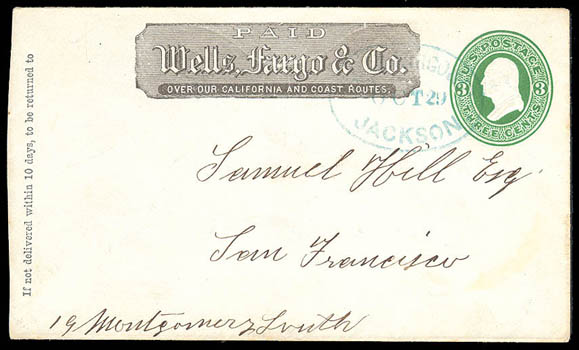 PAID
Wells, Fargo & Co.
OVER OUR CALIFORNIA AND COAST ROUTES.
U.S. POSTAGE
3 3
THREE CENTS
OCT 29
JACKSON
Samuel Hill Esq
San Francisco
19 Montgomery South
If not delivered within 10 days, to be returned to